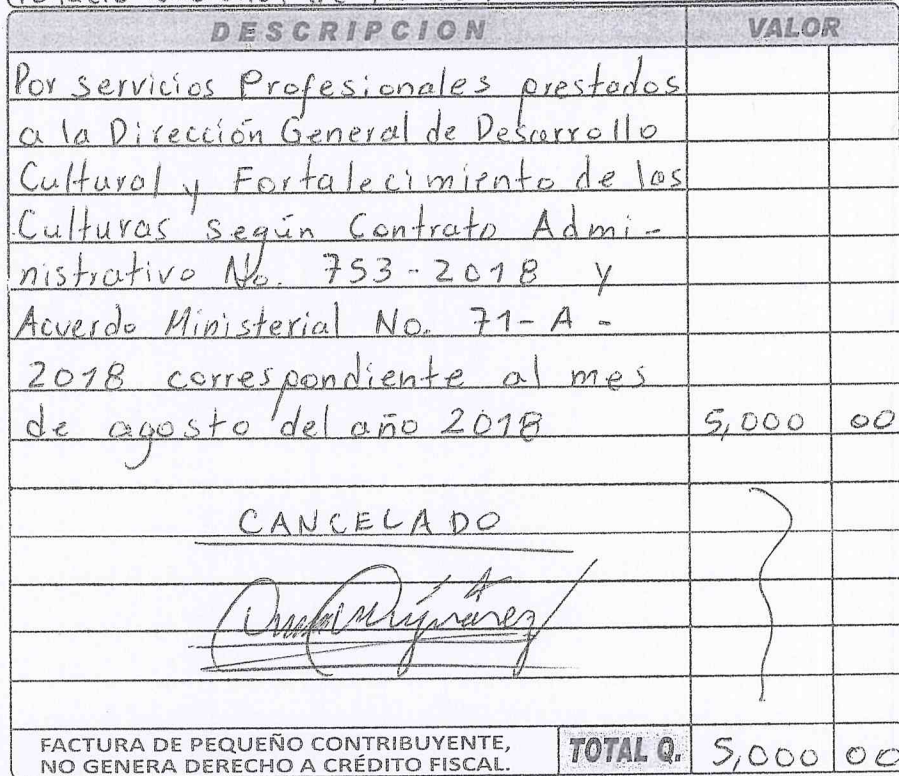 DESCRIPCION VALOR
Por servicios Profesionales prestados
a la Dirección General de Desarrollo
Cultural y Fortalecimiento de las
Culturas según Contrato Admi-
nistrativo No. 753-2018 y
Acuerdo Ministerial No. 71-A-
2018 correspondiente al mes
de agosto del año 2018 5,000 00
CANCELADO
FACTURA DE PEQUEÑO CONTRIBUYENTE,
NO GENERA DERECHO A CRÉDITO FISCAL.
TOTAL Q. 5,000 00